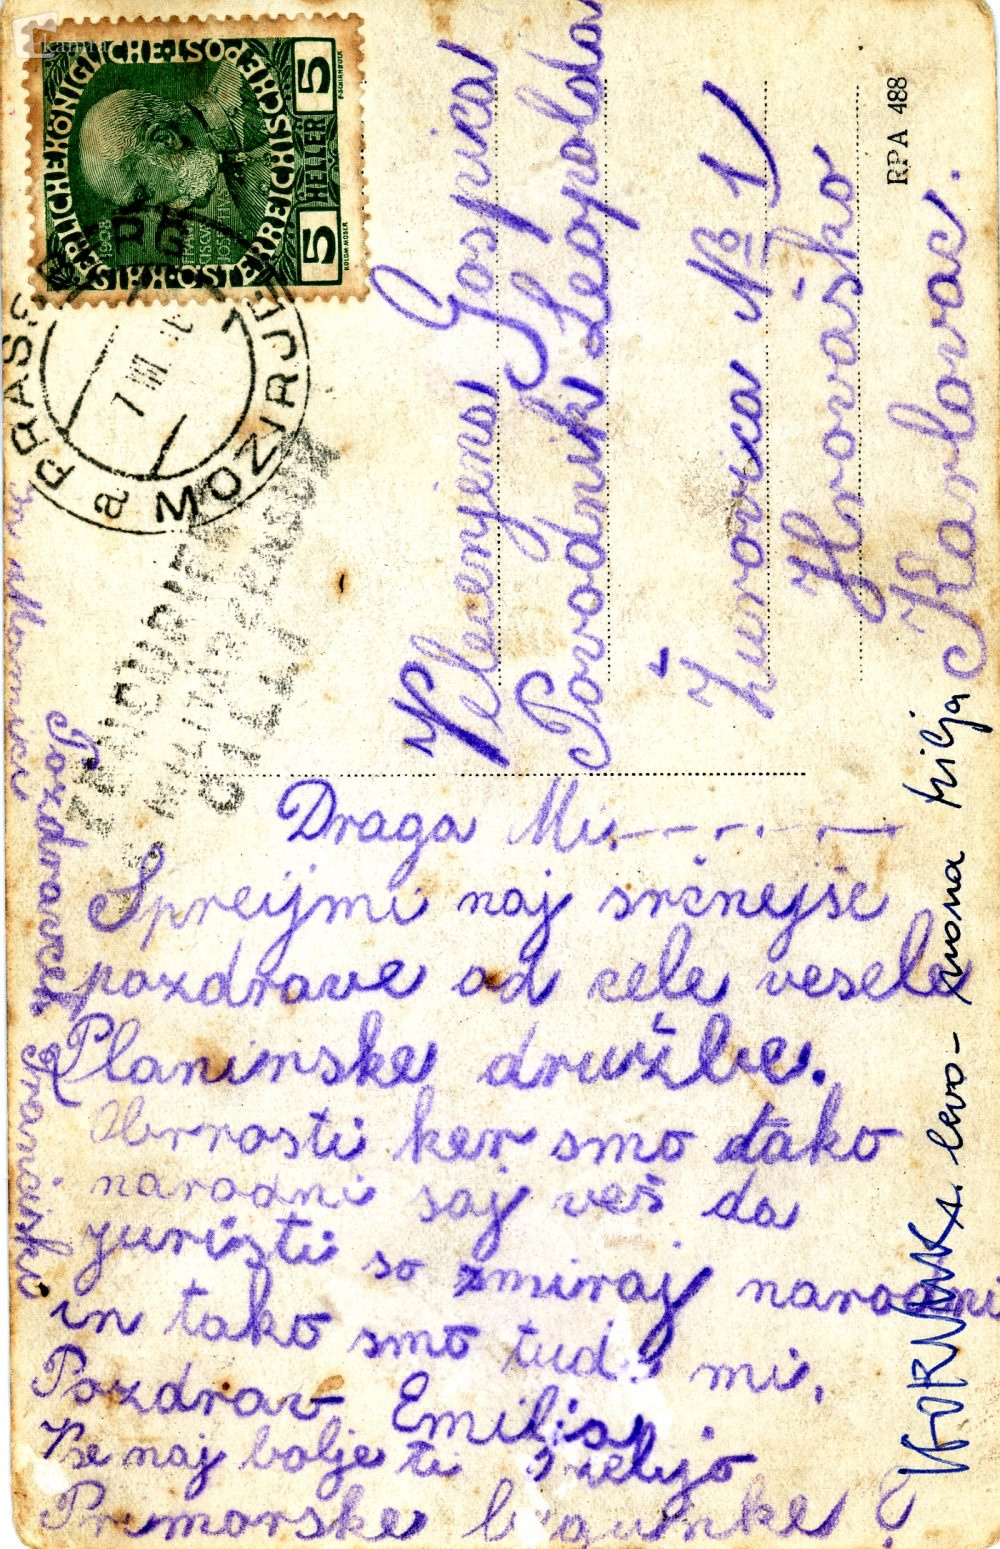 kamra
KAISERLICHE KÖNIGLICHE ÖSTERREICHISCHE POST
5 HELLER 5
1908
PRASSBERG
a MOZIRJE
7 VIII
ZENSURIERT
MILITÄRZENSUR
CILLI
RPA 488
Velecenjena Gospica
Povodnik Leopolda
Žurovica № 1
Hrovaško
Karlovac.
Draga Mi.
Spreijmi naj srčnejše
pozdrave od cele vesele
Planinske družbe.
ker smo tako
narodni saj veš da
juristi so zmiraj narodni
in tako smo tudi mi.
Pozdrav Emilija.
Vse naj bolje ti želijo
Primorske
Pozdravček Franciska
in Mamici
levo - moma tilja